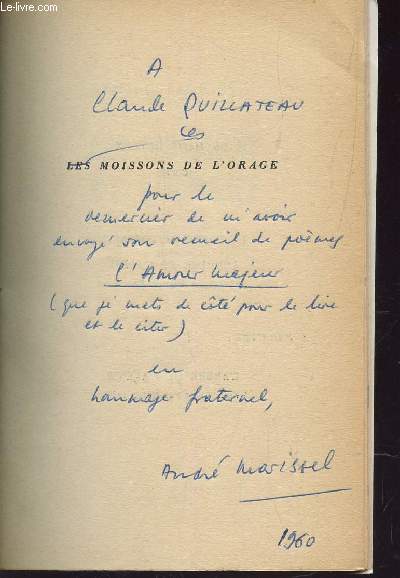 Le-livre.com
A
Claude QUILLATEAU
ces
LES MOISSONS DE L'ORAGE
pour le
remercier de m'avoir
envoyé son recueil de poèmes
l'Amour majeur
(que je mets de côté pour le lire
et le citer)
en
hommage fraternel,
André Marissel
1960